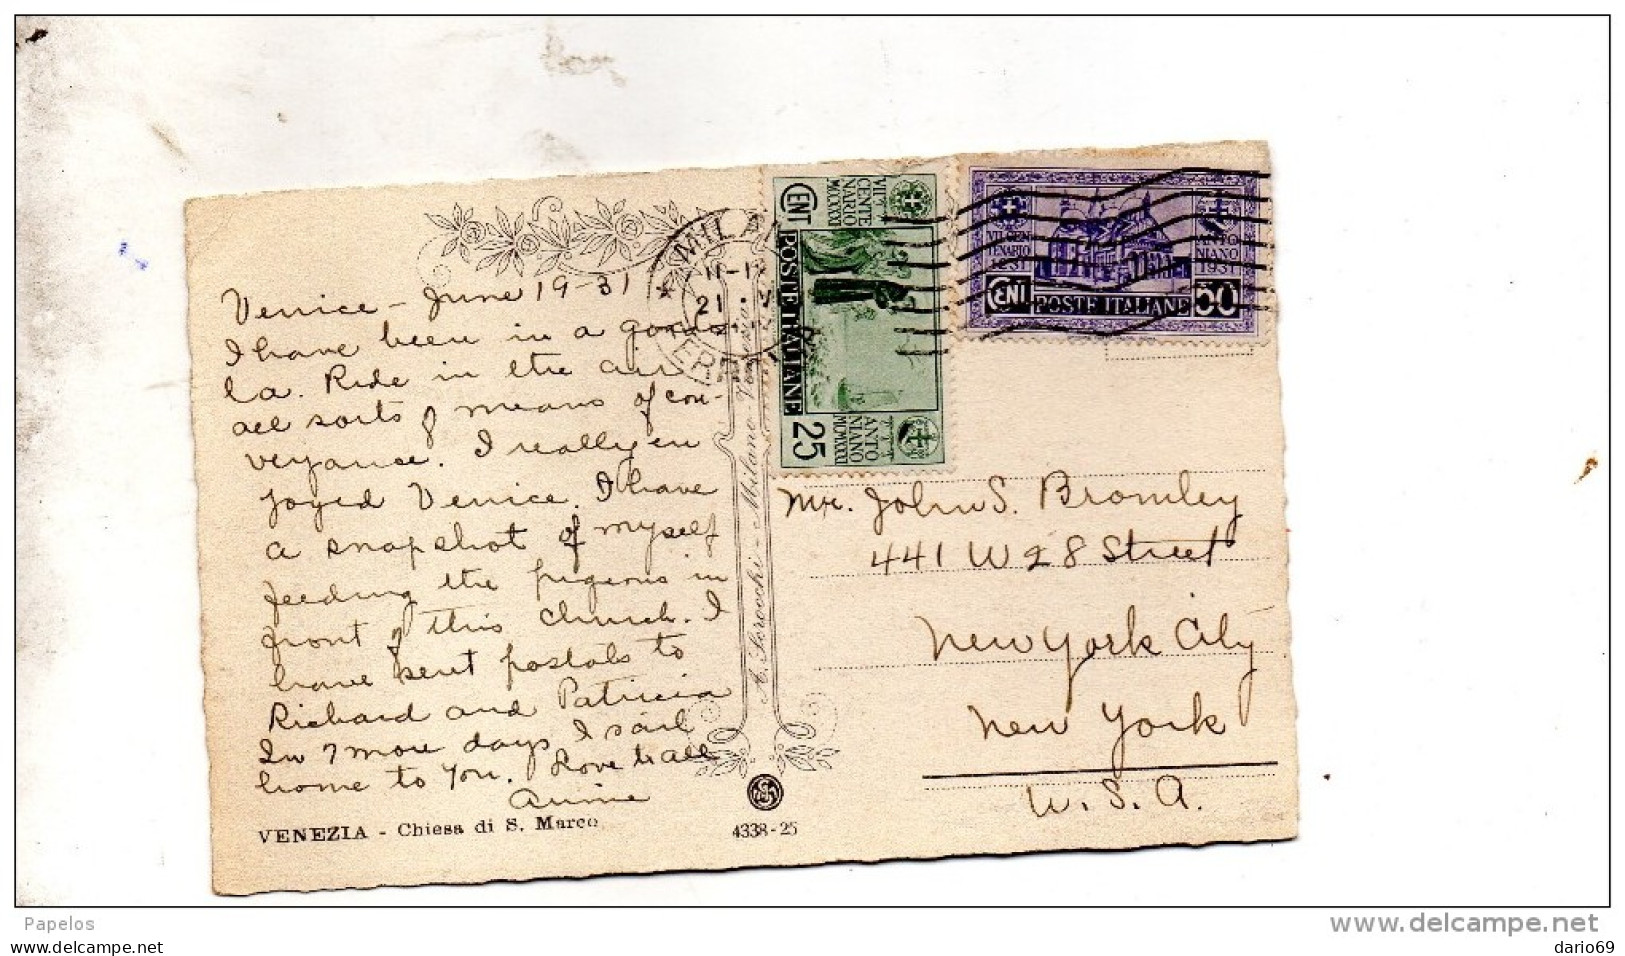 Venice - June 19-31
I have been in a gondo
la. Ride in the air
all sorts of means of con-
veyance. I really en
joyed Venice. I have
a snapshot of myself
feeding the pigeons in
front of this church. I
have sent postals to
Richard and Patricia
In 7 more days I sail
home to you. Love to all
VENEZIA - Chiesa di S. Marco
4338-25
A. Scrocchi - Milano-Venezia
MILANO
21
FERROVIA
VII CENTE
NARIO
MCCXXXI
CENT
POSTE ITALIANE
ANTO
NIANO
MCMXXXI
25
VII CEN
TENARIO
1231
ANTO
NIANO
1931
CENT
POSTE ITALIANE
50
Mr. John S. Bromley
441 W 28 Street
New York City
New York
U.S.A.
Papelos
www.delcampe.net
www.delcampe.net
dario69